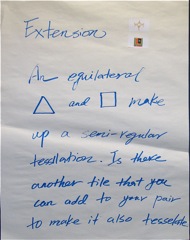 Extension
An equilateral
△ and □ make
up a semi-regular
tessellation. Is there
another tile that you
can add to your pair
to make it also tesselate